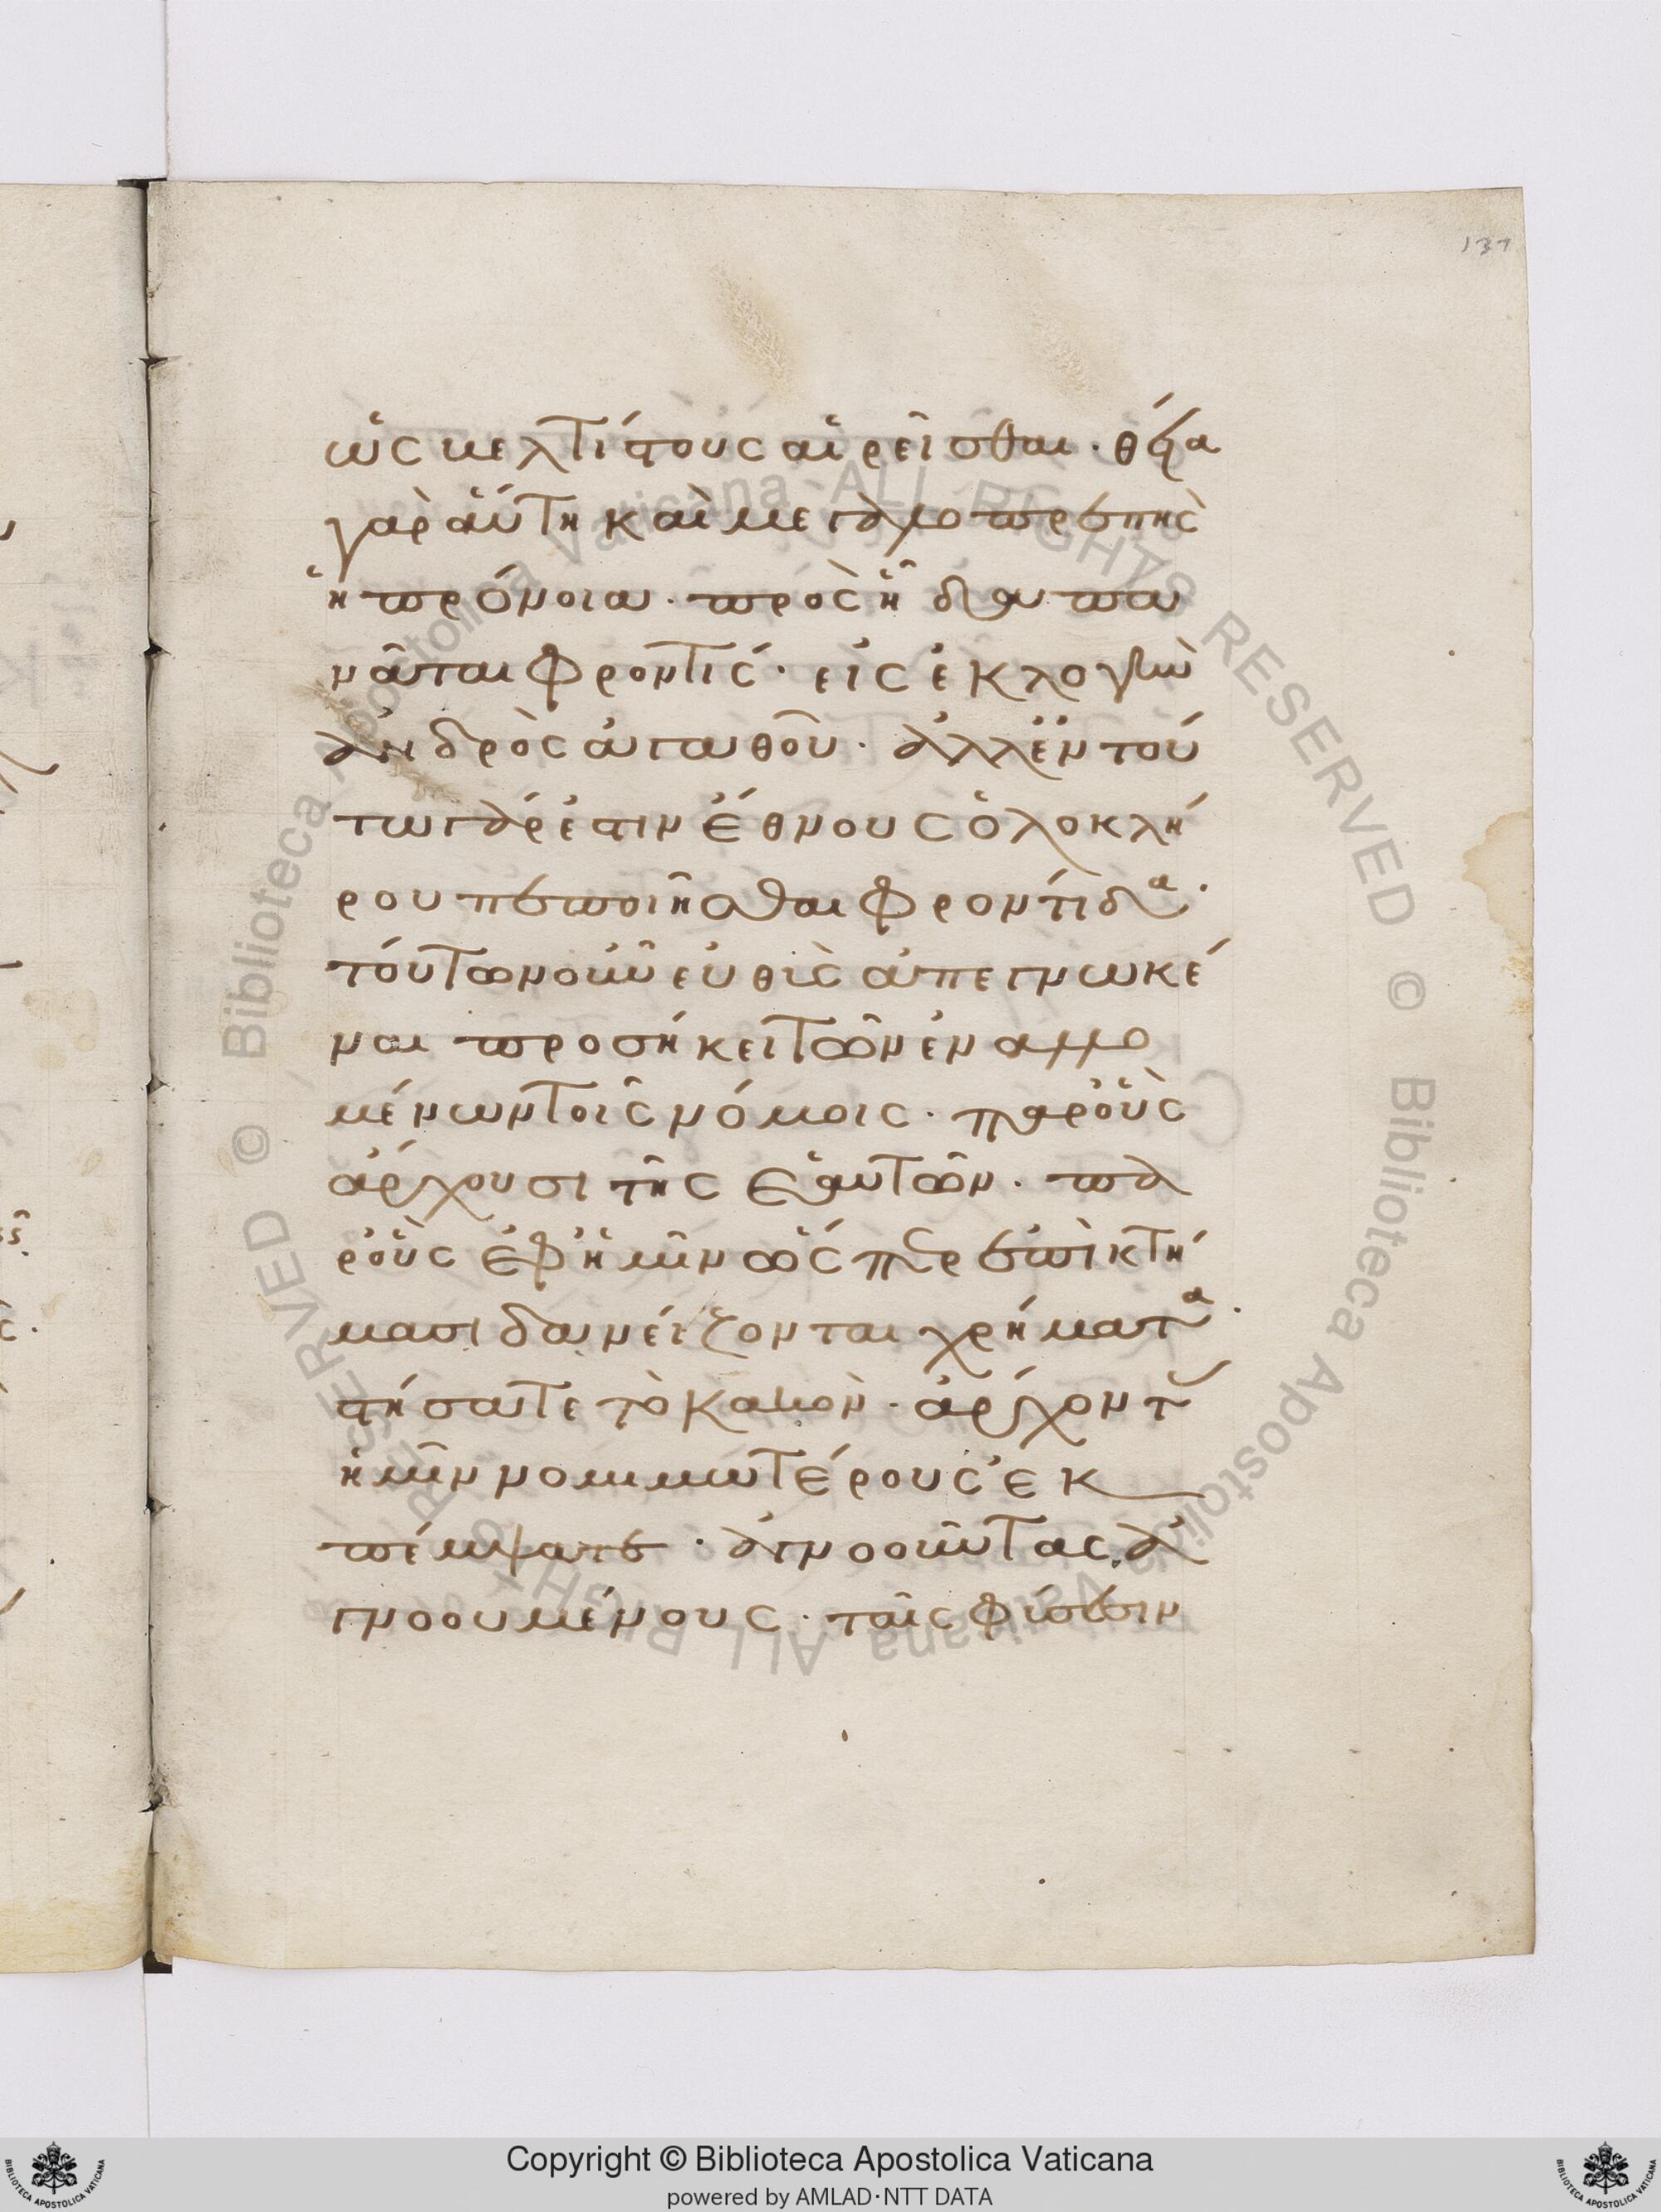 137
ὡς βελτίστους αἱρεῖσθαι · θεία
γὰρ αὕτη καὶ μεγαλοπρεπὴς
ἡ πρόνοια · πρὸς ἣν δαπα
νᾶται φροντίς · εἰς ἐκλογὴν
ἀνδρὸς ἀγαθοῦ · ἀλλ' ἐν τού
τω γάρ ἐστιν ἔθνους ὁλοκλή
ρου πεποιῆσθαι φροντίδα ·
τούτων οὖν εὐθὺς ἀπεγνωκέ
ναι προσήκει τῶν ἐναλλο
μένων τοῖς νόμοις · παρ' οὓς
ἄρχουσι τῆς ἑαυτῶν · πα
ρ' οὓς ἐφ' ἡμῖν ὡς περ ἐπὶ κτή
μασι δανείζονται χρήματα ·
στήσατε τὸ κακὸν · ἄρχοντας
ἡμῖν νομιμωτέρους ἐκ
πέμψατε · ἀγνοοῦντας ἀ
γνοουμένους · ταῖς φύσεσιν
© Biblioteca Apostolica Vaticana ALL RIGHTS RESERVED
© Biblioteca Apostolica Vaticana ALL RIGHTS RESERVED
Copyright © Biblioteca Apostolica Vaticana
powered by AMLAD·NTT DATA